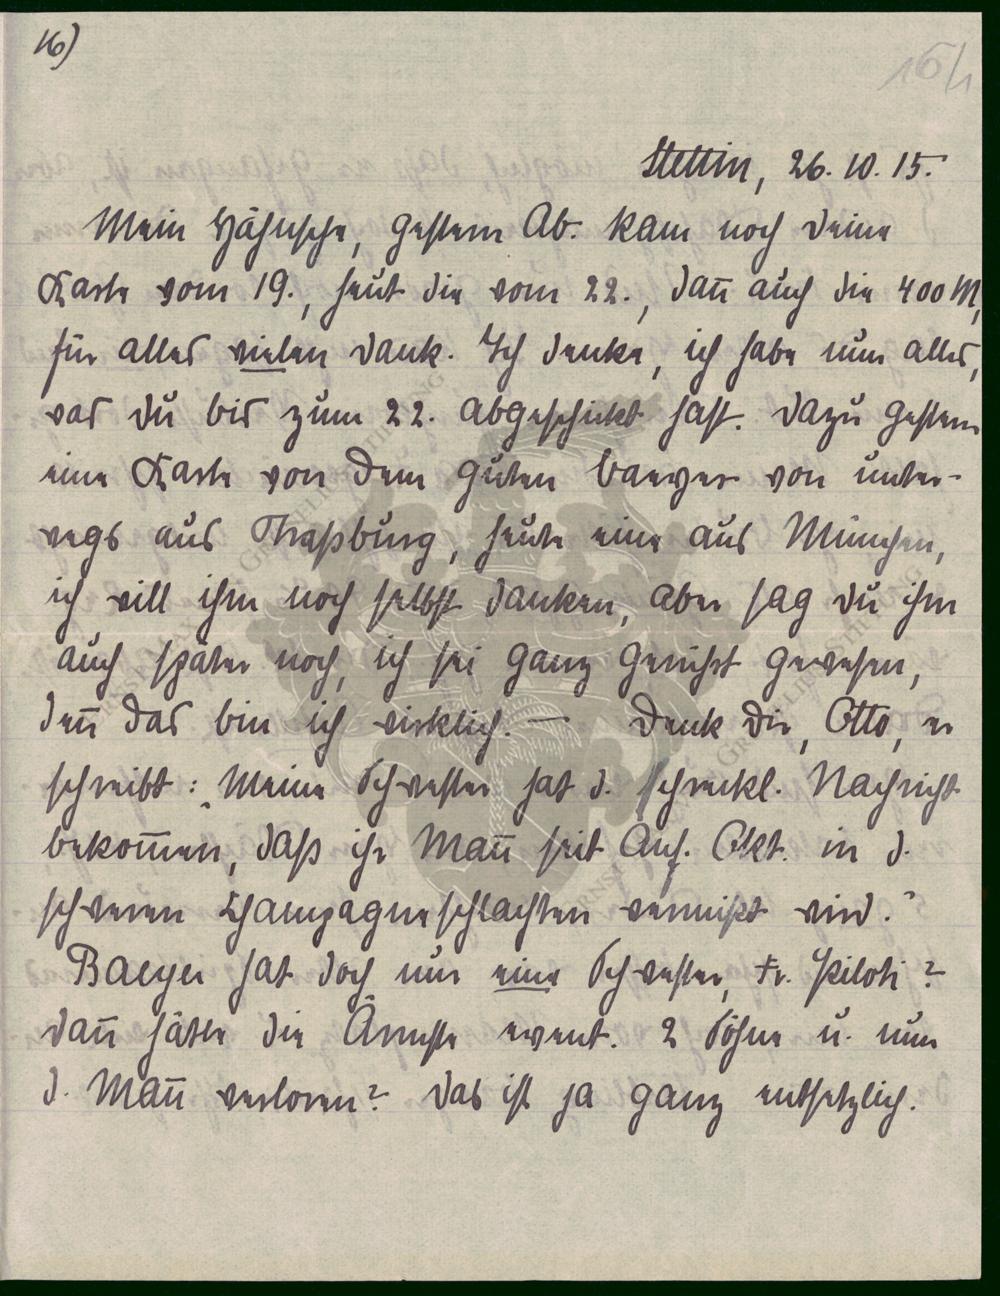 16)
16/1
Stettin, 26. 10. 15.
Mein Hähnsche, gestern Ab. kam noch deine
Karte vom 19., heut die vom 22., dan̄ auch die 400 M,
für alles vielen Dank. Ich denke, ich habe nun alles,
was du bis zum 22. abgeschickt hast. Dazu gestern
eine Karte von dem guten Baeyer von unter-
wegs aus Straßburg, heute eine aus München,
ich will ihm noch selbst danken, aber sag du ihm
auch später noch, ich sei ganz gerührt gewesen,
den̄ das bin ich wirklich. — Denk Dir, Otto, er
schreibt: „Meine Schwester hat d. schreckl. Nachricht
bekom̄en, daß ihr Man̄ seit Anf. Okt. in d.
schweren Champagneschlachten vermißt wird."
Baeyer hat doch nur eine Schwester, Fr. Piloti?
Dan̄ hätte die Ärmste event. 2 Söhne u. nun
d. Man̄ verloren? Das ist ja ganz entsetzlich.